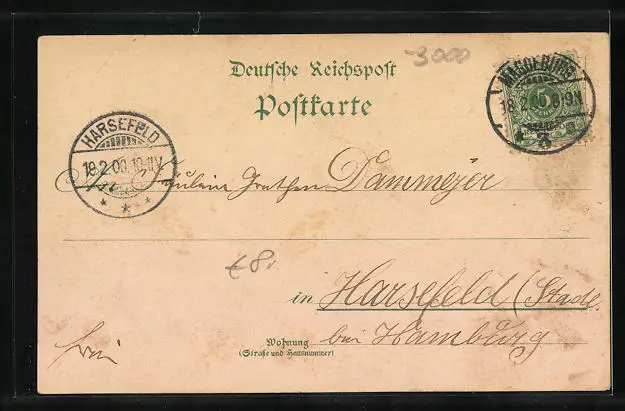 3000
Deutsche Reichspost
Postkarte
MAGDEBURG
18.2.00.8-9N
5
HARSEFELD
19.2.00.10-11V
* * *
Fräulein Grethen Dammeyer
€8,
in Harsefeld (Stade
bei Hamburg
Wohnung
(Straße und Hausnummer)
frei